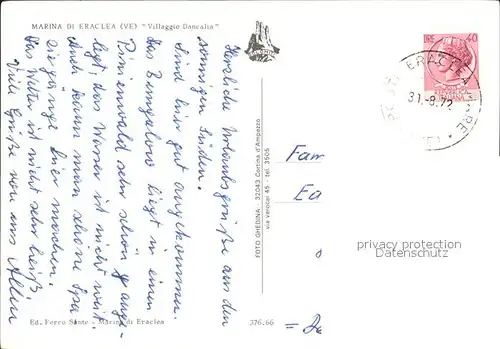 MARINA DI ERACLEA (VE) "Villaggio Dancalia"
LIRE 40
ERACLEA MARE
31-8.72
Herzliche Urlaubsgrüße aus dem
sonnigen Süden.
Sind hier gut angekommen.
das Bungalow liegt in einem
Pinienwald sehr schön ange-
legt, das Wasser ist nicht weit.
Auch kann man schöne Spa-
ziergänge hier machen.
Das Wetter ist nicht sehr heiß.
Viele Grüße von uns Allen
FOTO GHEDINA - 32043 Cortina d'Ampezzo
via verocai 45 - tel. 3505
Fam
privacy protection
Datenschutz
Ed. Ferro Sante - Marina di Eraclea
376.66